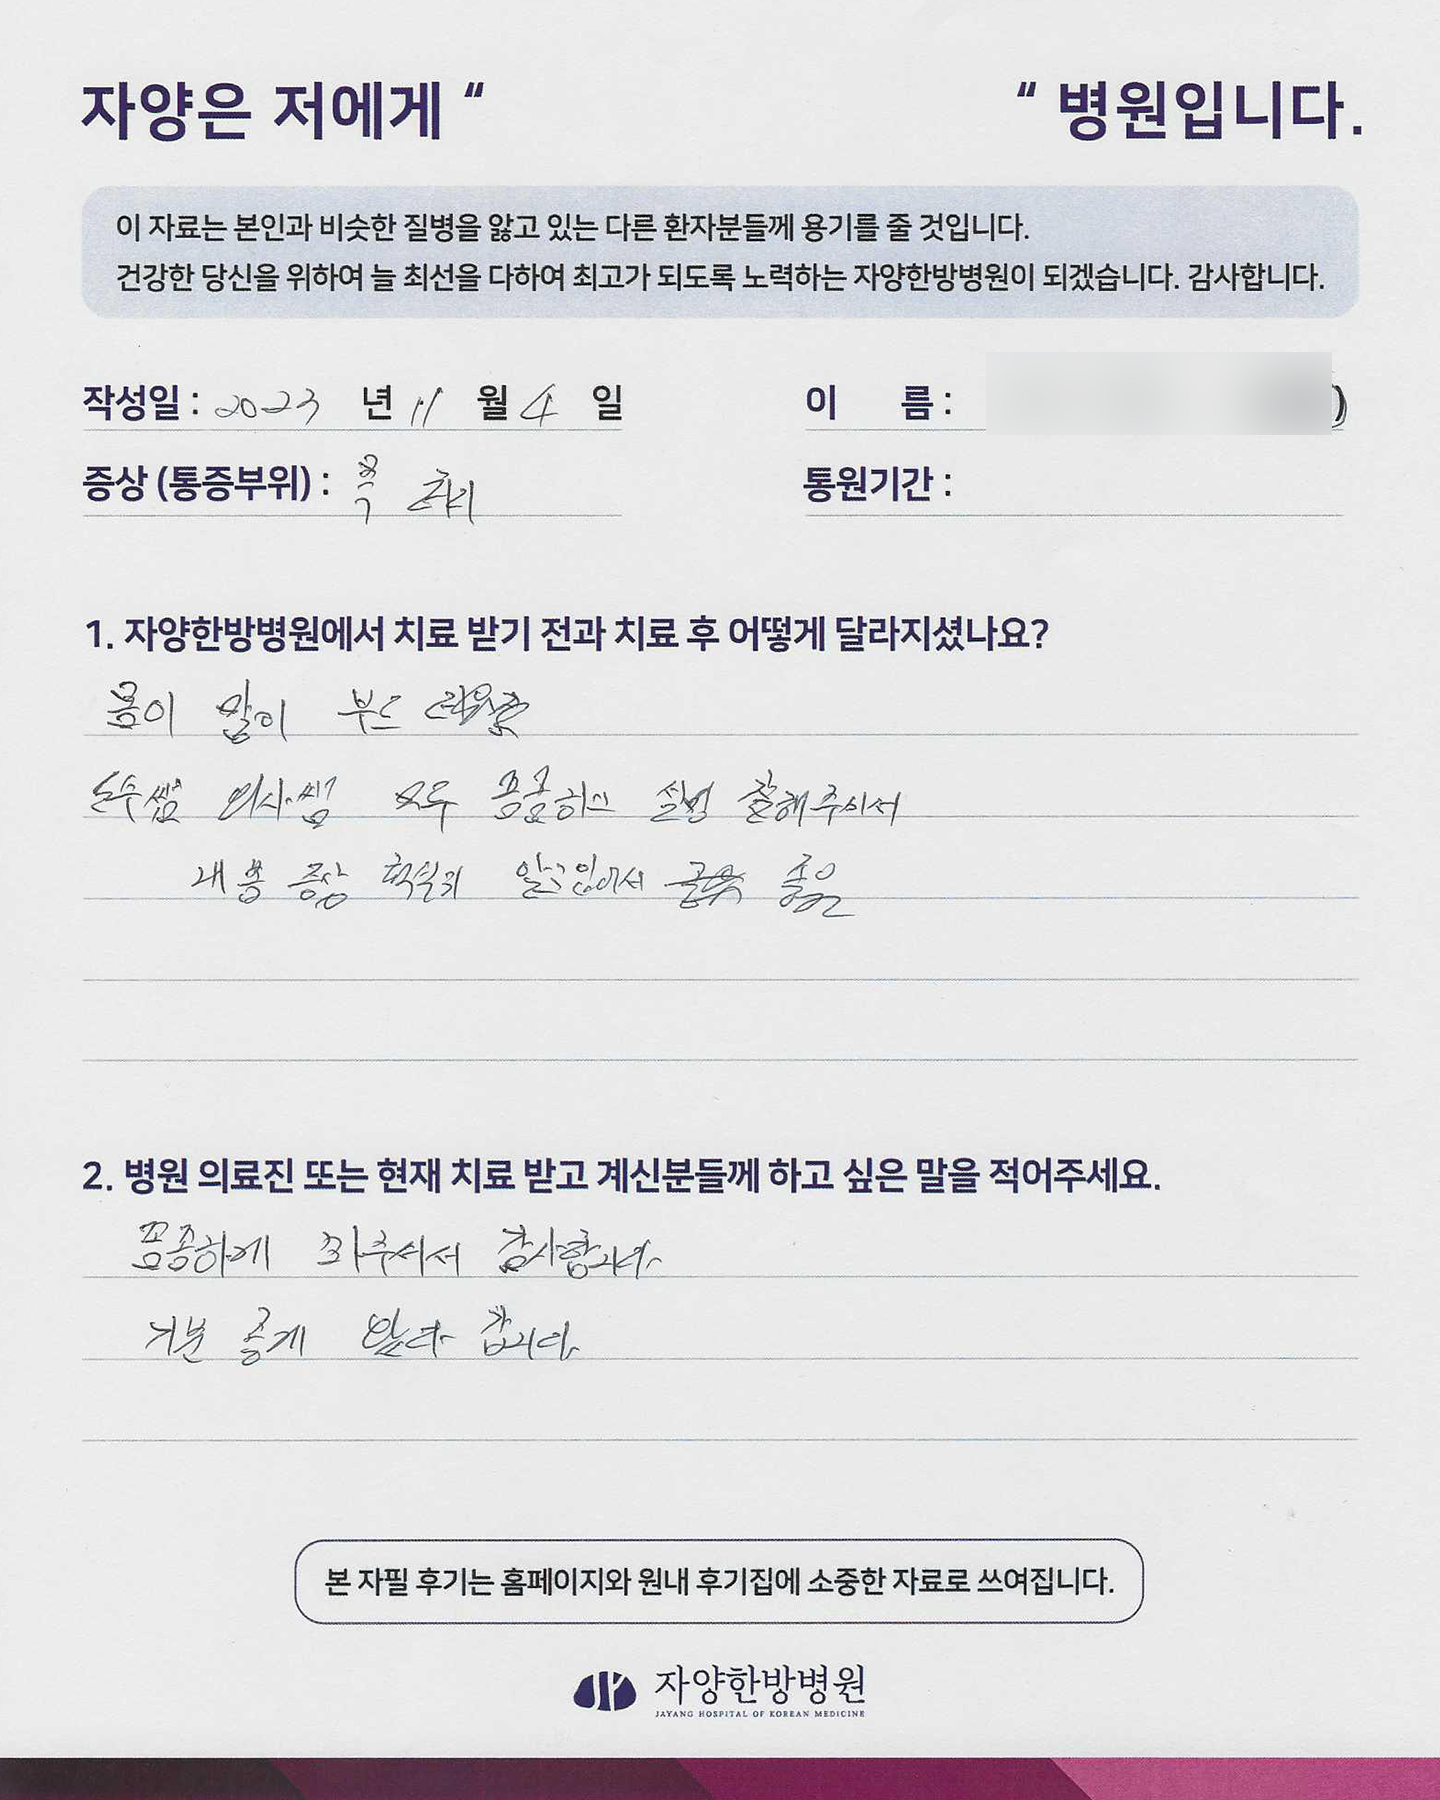 자양은 저에게 “ “ 병원입니다.
이 자료는 본인과 비슷한 질병을 앓고 있는 다른 환자분들께 용기를 줄 것입니다.
건강한 당신을 위하여 늘 최선을 다하여 최고가 되도록 노력하는 자양한방병원이 되겠습니다. 감사합니다.
작성일 : 2023 년 11 월 4 일 이 름 : )
증상 (통증부위) : 목 허리 통원기간 :
1. 자양한방병원에서 치료 받기 전과 치료 후 어떻게 달라지셨나요?
몸이 많이 부드
의사쌤 모두 꼼꼼히 설명 잘해주시서
내 몸 증상 확실히 알고있어서 좋음
2. 병원 의료진 또는 현재 치료 받고 계신분들께 하고 싶은 말을 적어주세요.
감사합니다.
기분 좋게 있다 갑니다.
본 자필 후기는 홈페이지와 원내 후기집에 소중한 자료로 쓰여집니다.
자양한방병원
JAYANG HOSPITAL OF KOREAN MEDICINE